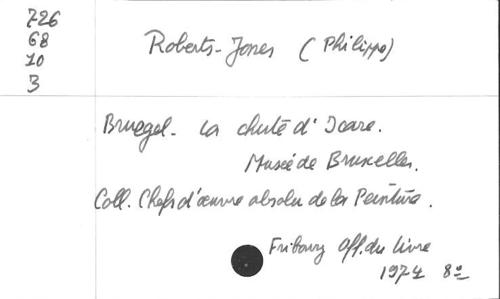 726
68
10
3
Roberts-Jones (Philippe)
Bruegel - La chute d'Icare.
Musée de Bruxelles.
Coll. Chefs d'œuvre absolu de la Peinture.
Fribourg Off. du livre
1974 8°